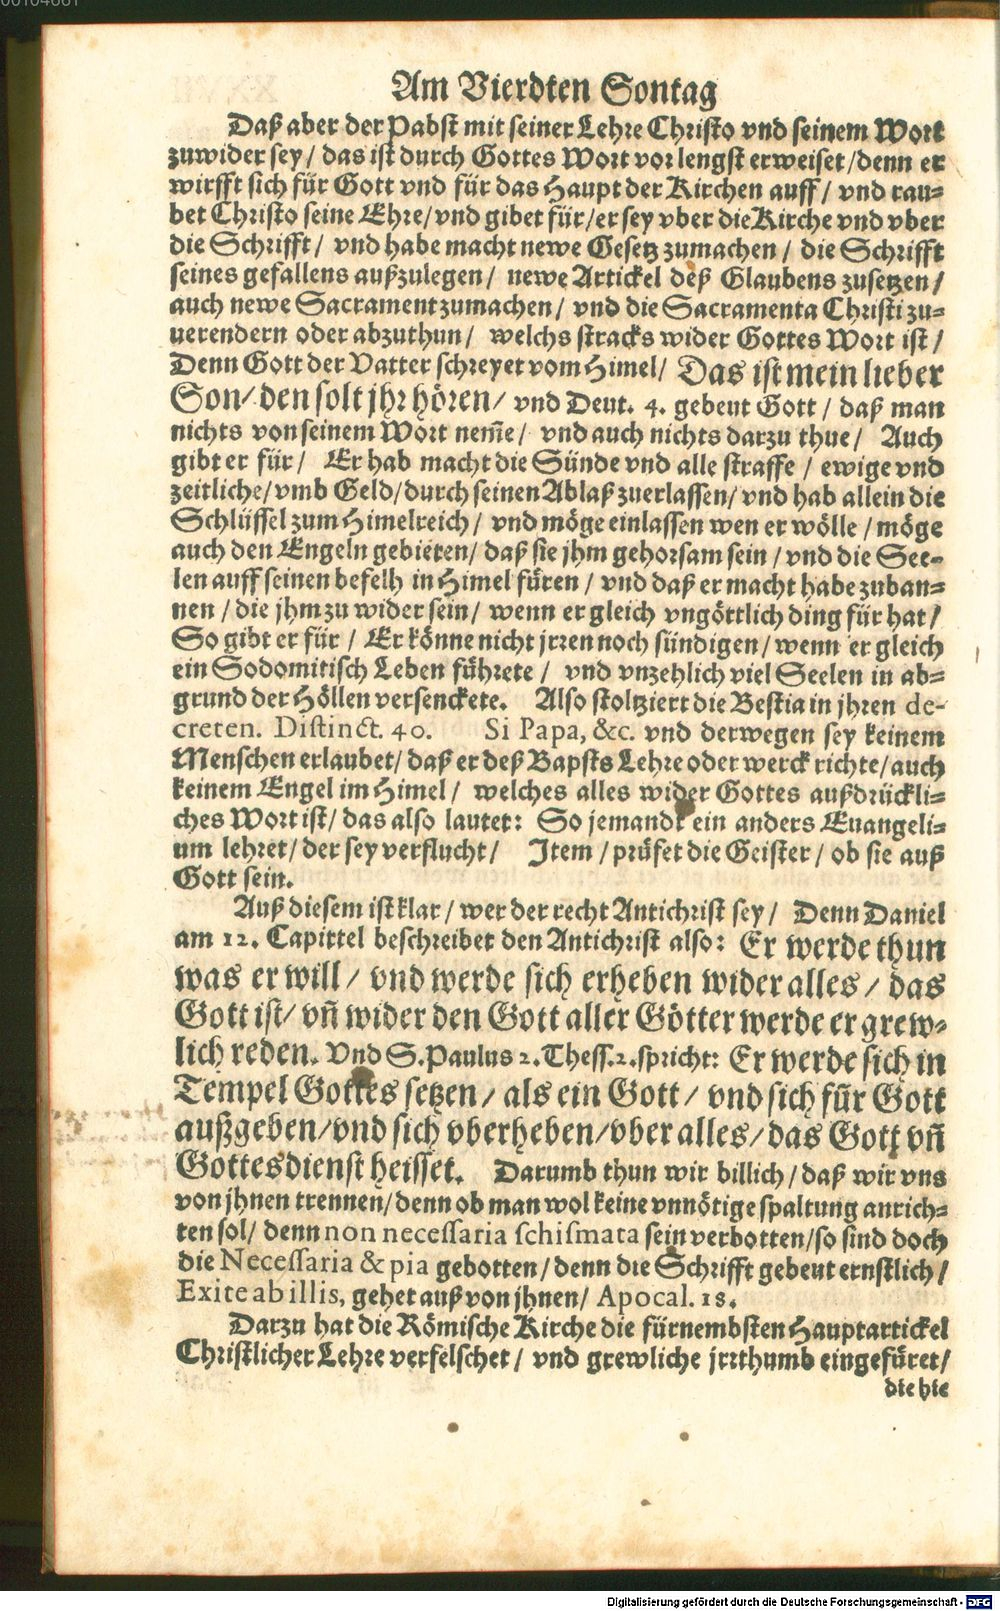 00104661
Am Vierdten Sontag
Daß aber der Pabst mit seiner Lehre Christo vnd seinem Wort
zuwider sey / das ist durch Gottes Wort vorlengst erweiset / denn er
wirfft sich für Gott vnd für das Haupt der Kirchen auff / vnd rau-
bet Christo seine Ehre / vnd gibet für / er sey vber die Kirche vnd vber
die Schrifft / vnd habe macht newe Gesetz zumachen / die Schrifft
seines gefallens außzulegen / newe Artickel deß Glaubens zusetzen /
auch newe Sacrament zumachen / vnd die Sacramenta Christi zu-
uerendern oder abzuthun / welchs stracks wider Gottes Wort ist /
Denn Gott der Vatter schreyet vom Himel / Das ist mein lieber
Son / den solt jhr hören / vnd Deut. 4. gebeut Gott / daß man
nichts von seinem Wort nem̃e / vnd auch nichts darzu thue / Auch
gibt er für / Er hab macht die Sünde vnd alle straffe / ewige vnd
zeitliche / vmb Geld / durch seinen Ablaß zuerlassen / vnd hab allein die
Schlüssel zum Himelreich / vnd möge einlassen wen er wölle / möge
auch den Engeln gebieten / daß sie jhm gehorsam sein / vnd die See-
len auff seinen befelh in Himel füren / vnd daß er macht habe zuban-
nen / die jhm zu wider sein / wenn er gleich vngöttlich ding für hat /
So gibt er für / Er könne nicht jrren noch sündigen / wenn er gleich
ein Sodomitisch Leben führete / vnd vnzehlich viel Seelen in ab-
grund der Höllen versenckete. Also stoltziert die Bestia in jhren de-
creten. Distinct. 40. Si Papa, &c. vnd derwegen sey keinem
Menschen erlaubet / daß er deß Bapsts Lehre oder werck richte / auch
keinem Engel im Himel / welches alles wider Gottes außdrückli-
ches Wort ist / das also lautet: So jemandt ein anders Euangeli-
um lehret / der sey verflucht / Item / prüfet die Geister / ob sie auß
Gott sein.
Auß diesem ist klar / wer der recht Antichrist sey / Denn Daniel
am 12. Capittel beschreibet den Antichrist also: Er werde thun
was er will / vnd werde sich erheben wider alles / das
Gott ist / vn̄ wider den Gott aller Götter werde er grew-
lich reden. Vnd S. Paulus 2. Thess. 2. spricht: Er werde sich in
Tempel Gottes setzen / als ein Gott / vnd sich für Gott
außgeben / vnd sich vberheben / vber alles / das Gott vn̄
Gottesdienst heisset. Darumb thun wir billich / daß wir vns
von jhnen trennen / denn ob man wol keine vnnötige spaltung anrich-
ten sol / denn non necessaria schismata sein verbotten / so sind doch
die Necessaria & pia gebotten / denn die Schrifft gebeut ernstlich /
Exite ab illis, gehet auß von jhnen / Apocal. 18.
Darzu hat die Römische Kirche die fürnembsten Hauptartickel
Christlicher Lehre verfelschet / vnd grewliche jrrthumb eingefüret /
die hie
Digitalisierung gefördert durch die Deutsche Forschungsgemeinschaft - DFG